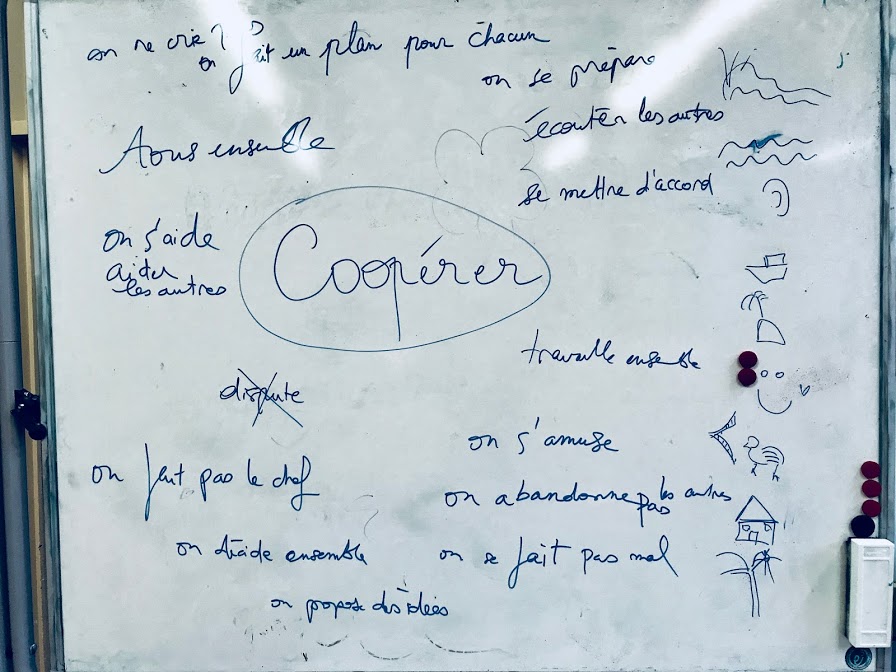 on ne crie
on fait un plan pour chacun
on se prépare
écouter les autres
Tous ensemble
se mettre d'accord
on s'aide
aider
les autres
Coopérer
travaille ensemble
dispute
on s'amuse
on fait pas le chef
on abandonne pas les autres
on décide ensemble
on se fait pas mal
on propose des idées